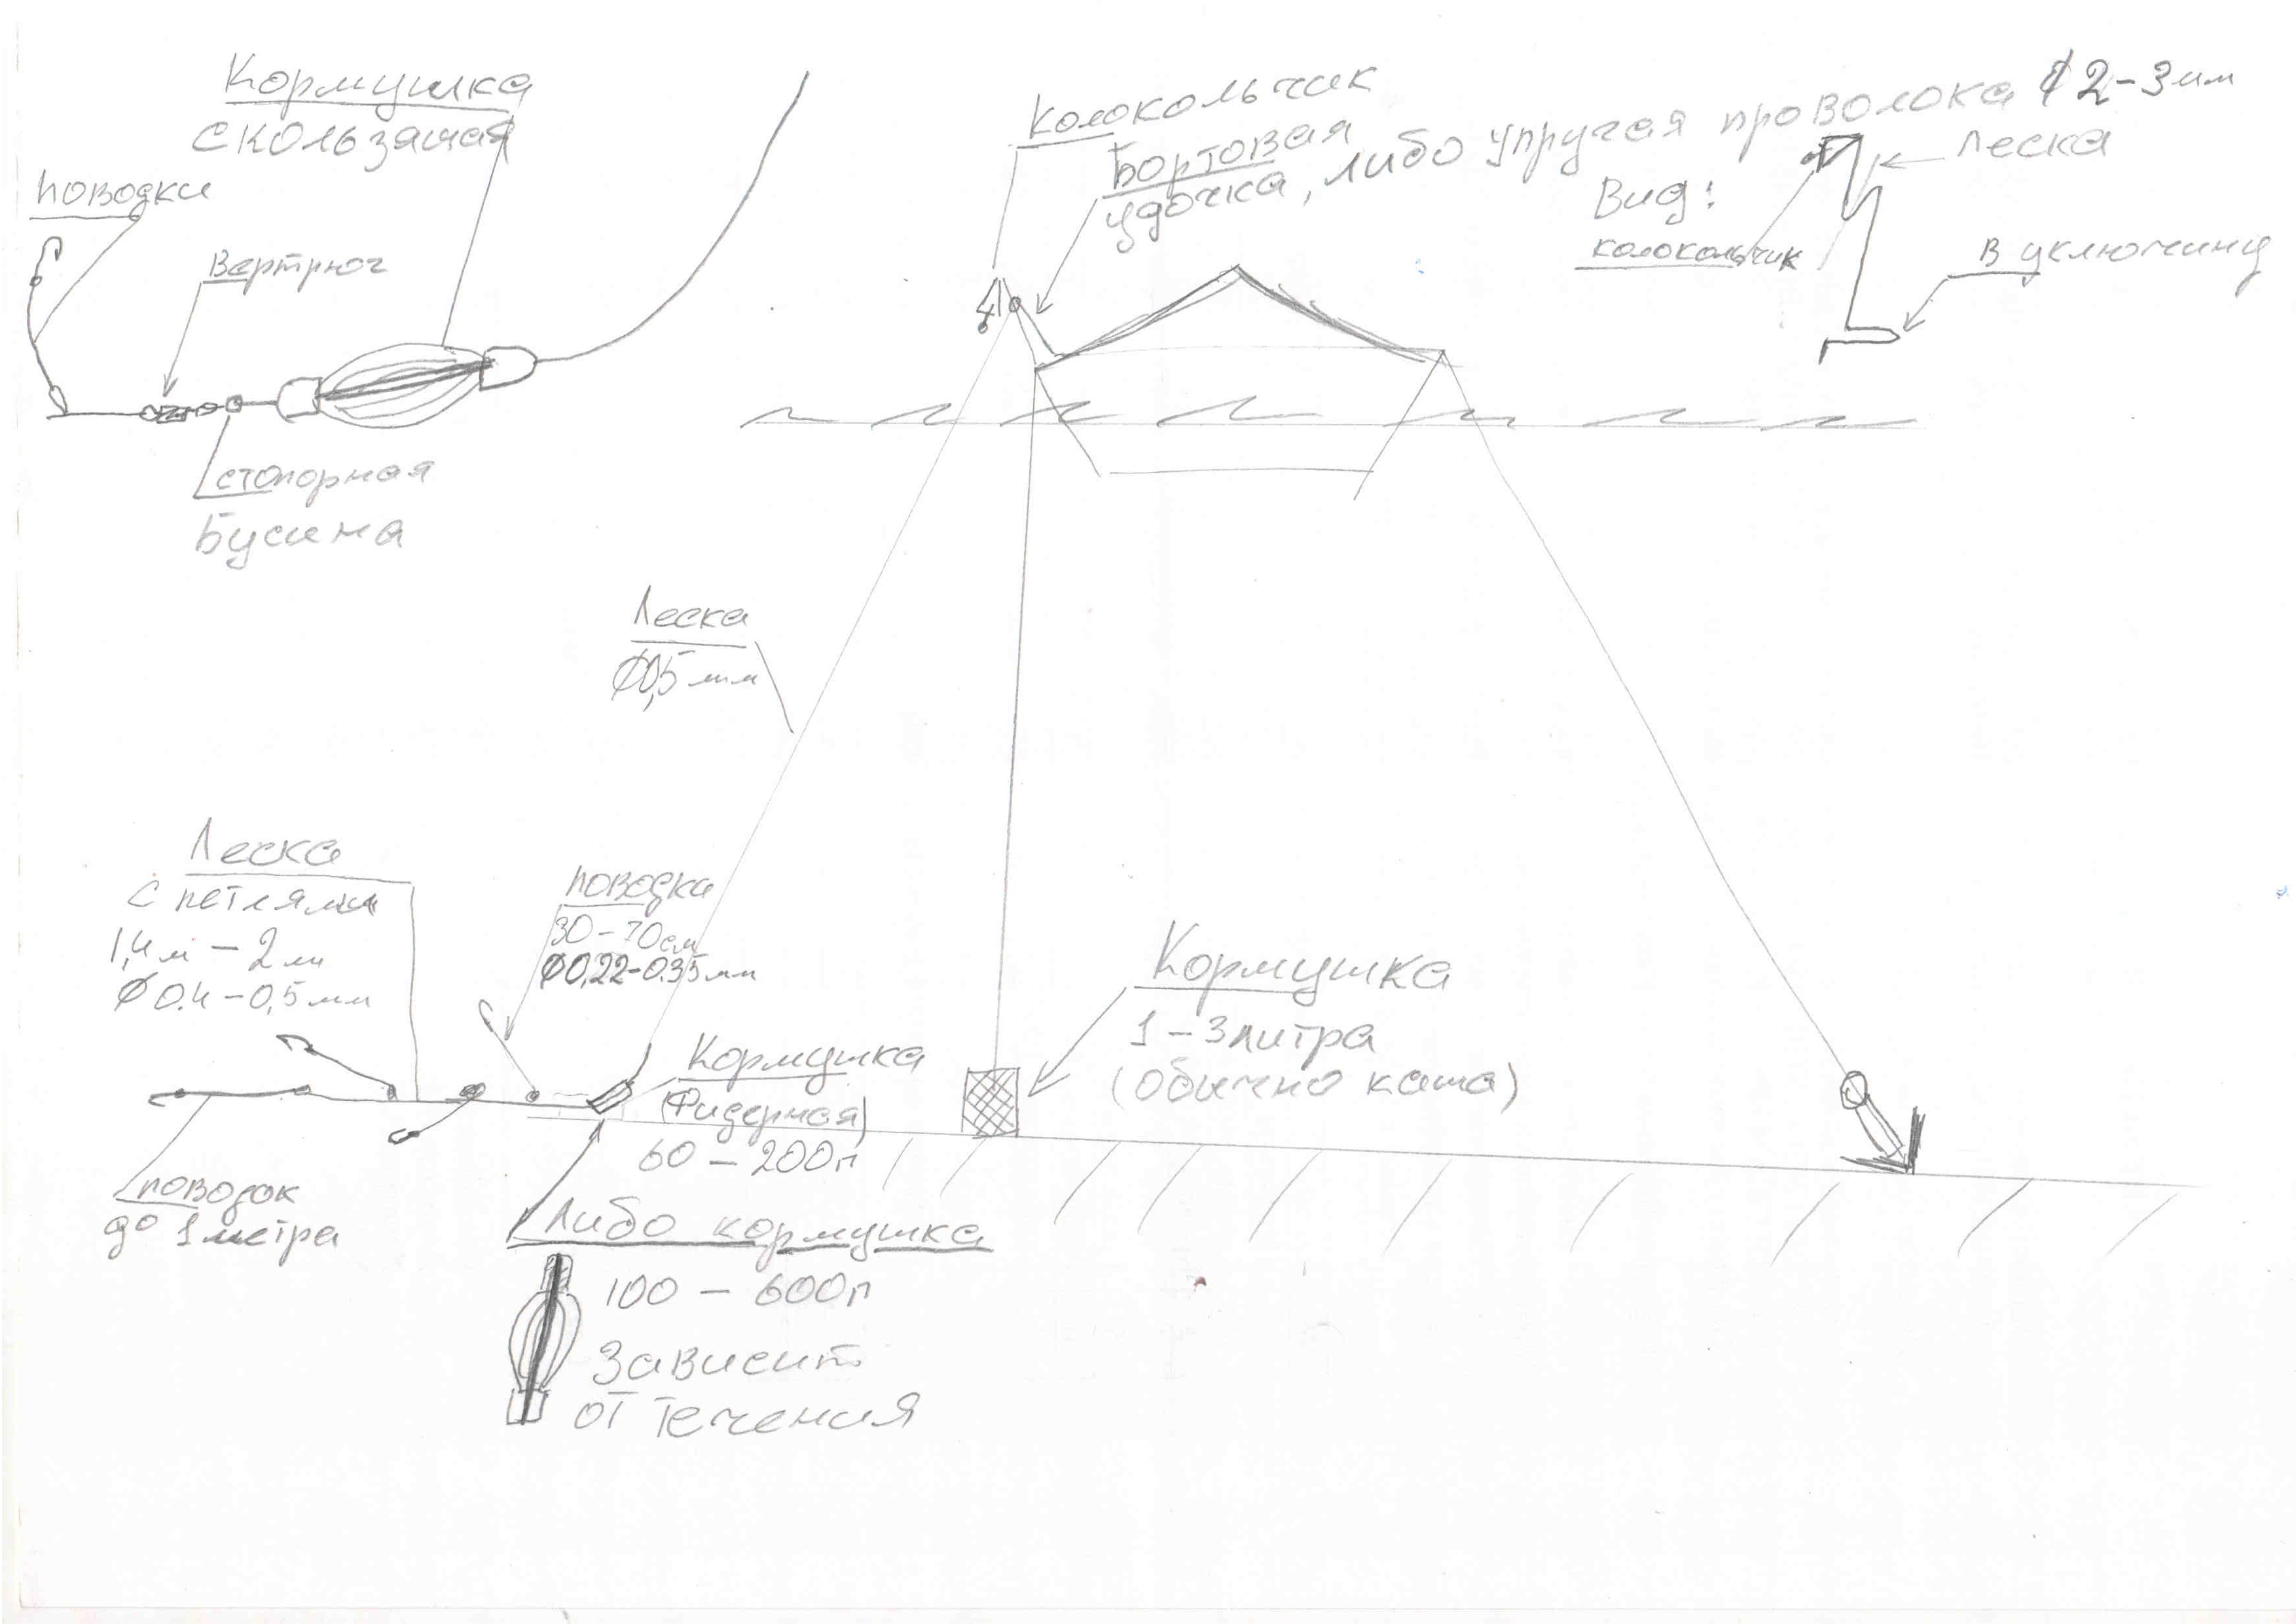 Кормушка
скользящая
поводки
вертлюг
стопорная
Бусина
колокольчик
Бортовая
удочка, либо упругая проволока ∅ 2-3 мм
Вид:
Леска
колокольчик
в уключину
Леска
∅0,5 мм
Леска
с петлями
1,4 м - 2 м
∅ 0.4 - 0,5 мм
поводки
30-70 см
∅0,22-0.35 мм
Кормушка
(Фидерная)
60 - 200г
Кормушка
1 - 3 литра
(обычно каша)
поводок
до 1 метра
Либо кормушка
100 - 600г
Зависит
от течения